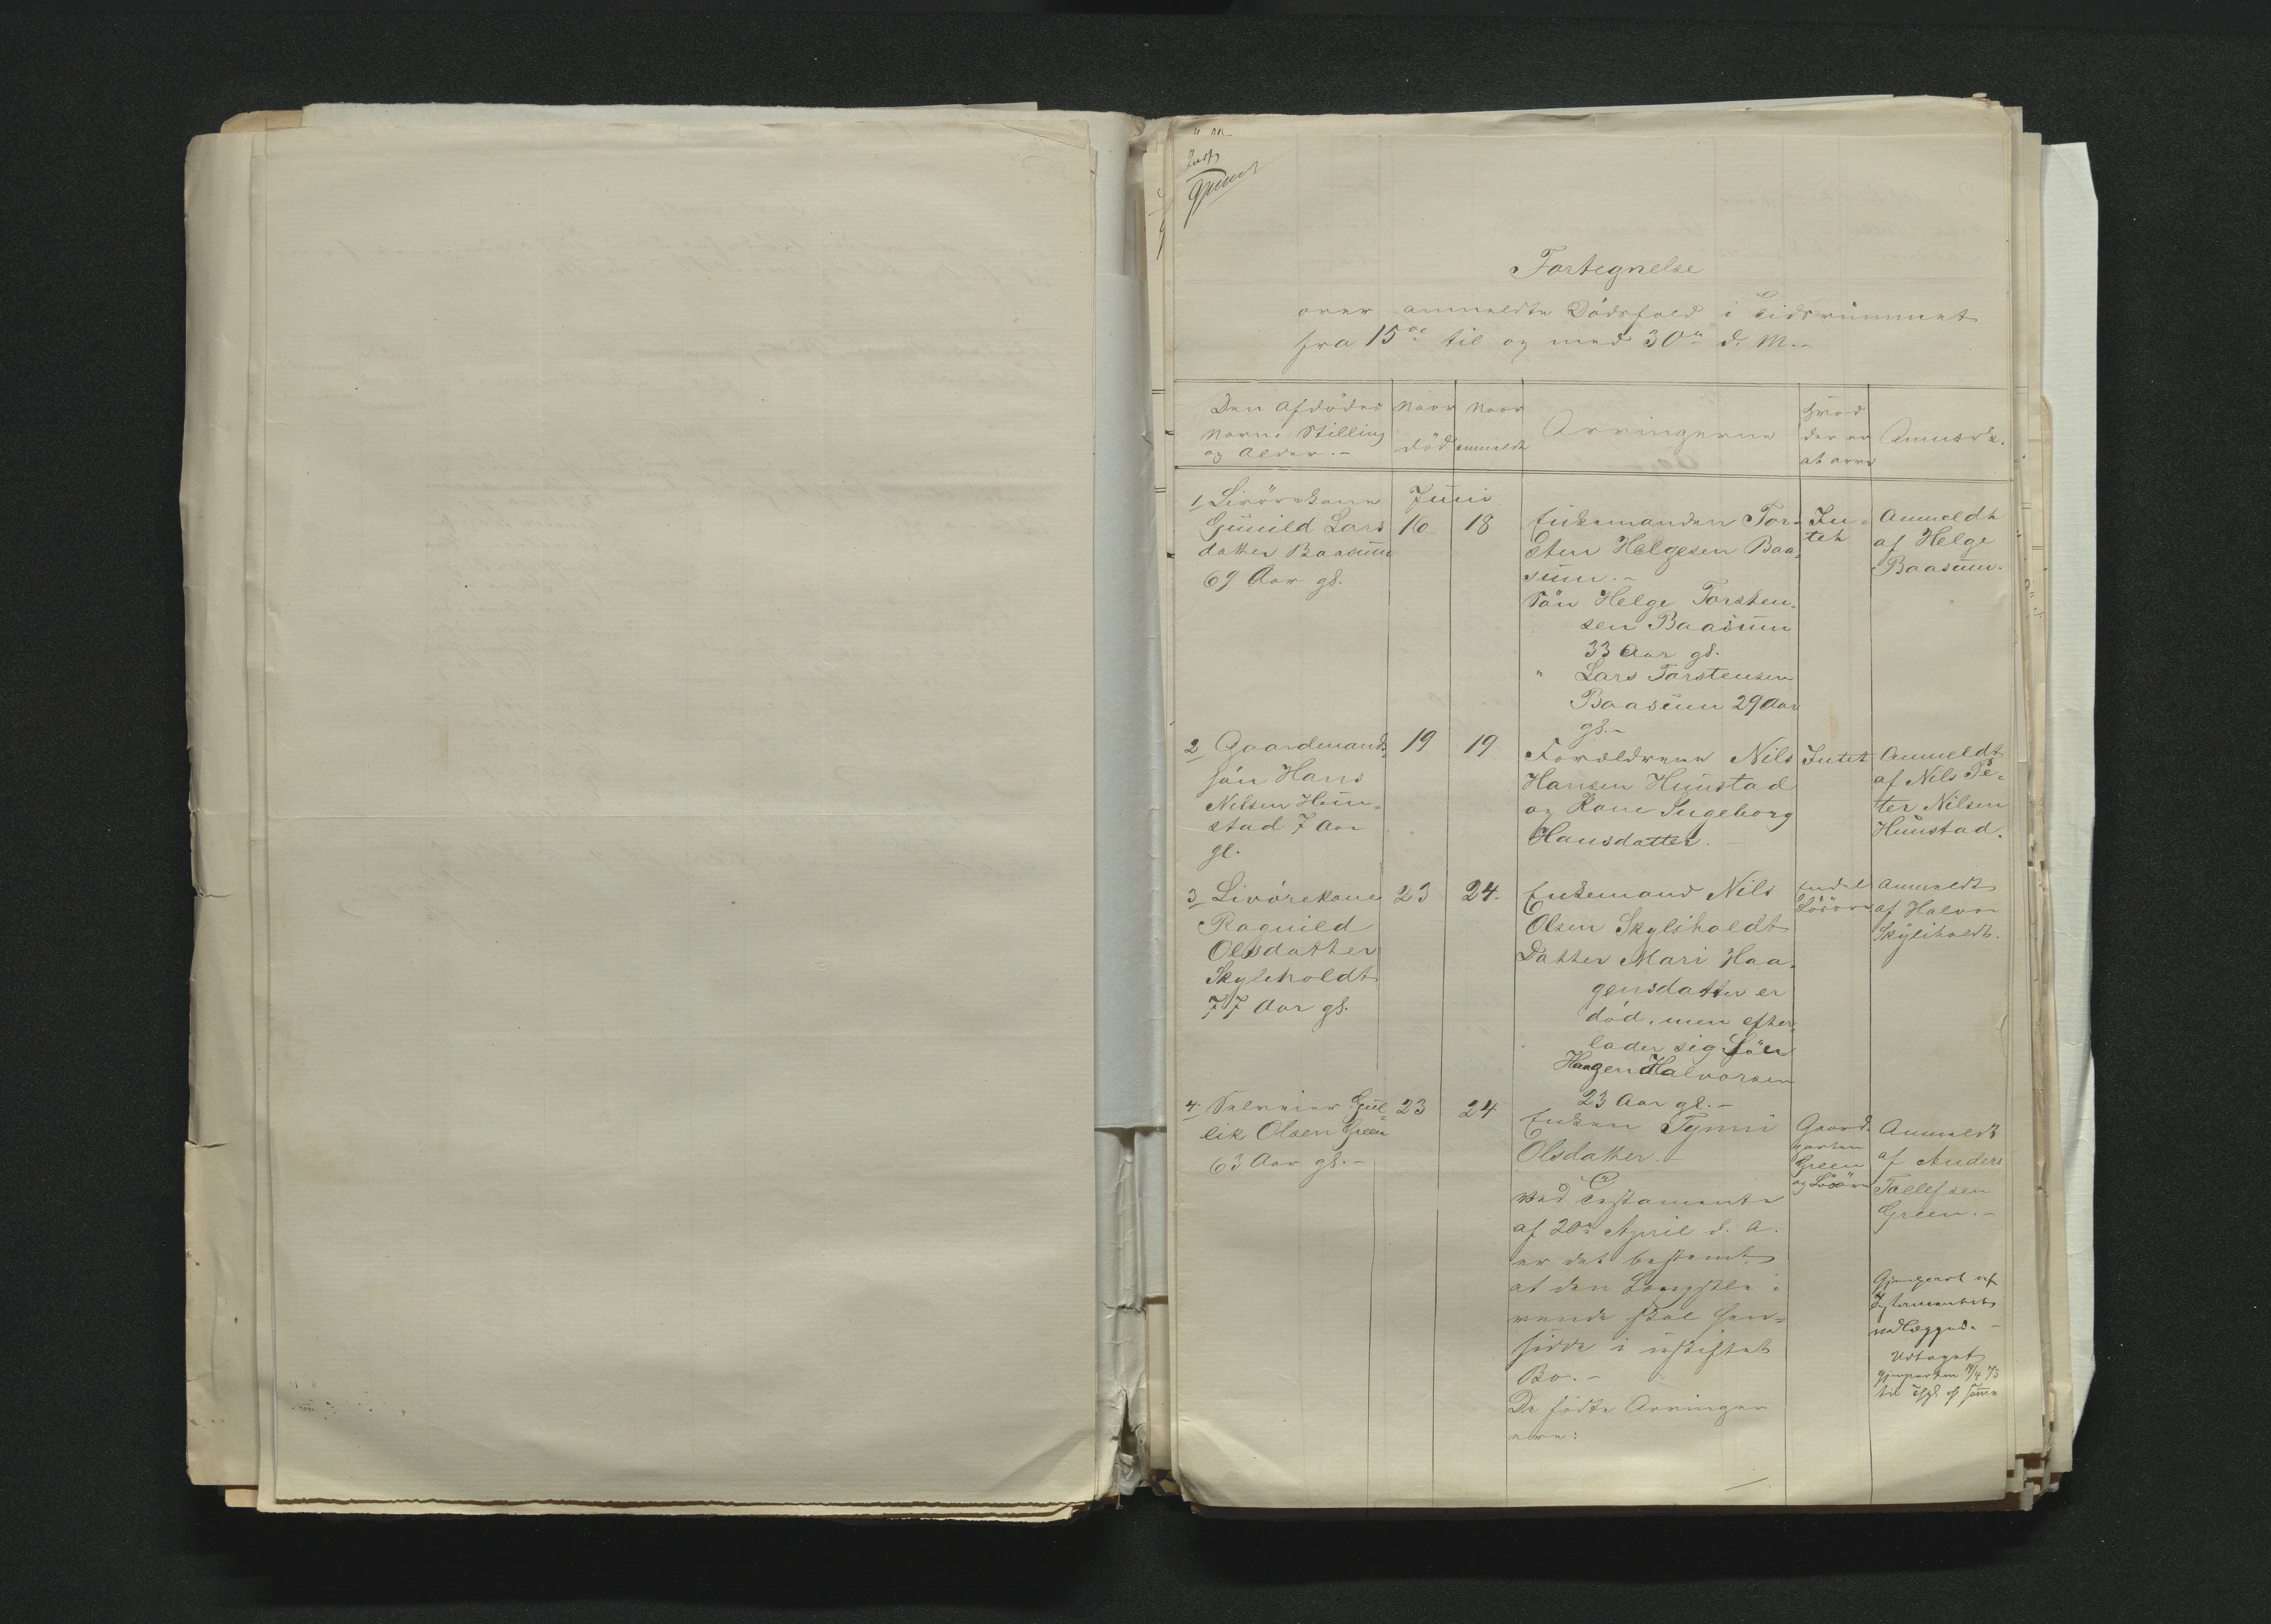 Fortegnelse
over anmeldte Dödsfald i Tidsrummet
fra 15de til og med 30te d. M.-
Den Afdödes
Navn, Stilling
og Alder.-
Naar
död
Naar
anmeldt
Arvingerne
Hvad
der er
at arve
Anmærk.
Juni
1/ Livörekone
Gunild Lars
datter Baasum
69 Aar gl.
16
18
Enkemanden Tor-
sten Helgesen Baa-
sum.-
Sön Helge Torsten-
sen Baasum
33 Aar gl.
" Lars Torstensen
Baasum 29 Aar
gl.-
In-
tet
Anmeldt
af Helge
Baasum.
2 Gaardmands-
sön Hans
Nilsen Hun-
stad 7 Aar
gl.
19
19
Forældrene Nils
Hansen Hunstad
og Kone Ingeborg
Hansdatter.-
Intet
Anmeldt
af Nils Pe-
ter Nilsen
Hunstad.
3/ Livörekone
Ragnild
Olsdatter
Skyliholdt
77 Aar gl.
23
24.
Enkemand Nils
Olsen Skyliholdt
Datter Mari Haa-
gensdatter er
död, men efter-
lader sig Sön
Haagen Halvorsen
23 Aar gl.-
Endel
Lösöre
Anmeldt
af Halvor
Skyliholdt.
4/ Selveier Gul-
lik Olsen Green
63 Aar gl.-
23
24
Enken Tynni
Olsdatter.-
Ved Testamente
af 20de April d. A.
er det bestemt,
at den Længstle-
vende skal hen-
sidde i uskiftet
Bo.-
De födte Arvinger
ere:
Gaard-
parten
Green
og Lösöre
Anmeldt
af Anders
Tollefsen
Green.-
Gjenpart af
Testamentet
vedlægges.-
Udtaget
Gjenparten